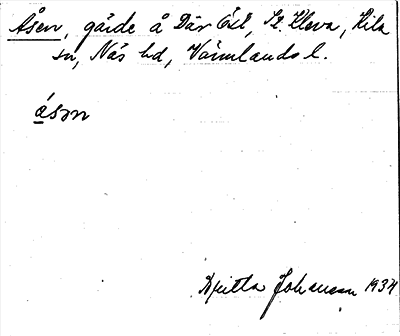 Åsen, gärde å Där Öst, St. Kleva, Kila
sn, Näs hd, Värmlands l.
åsən
Britta Johansson 1934